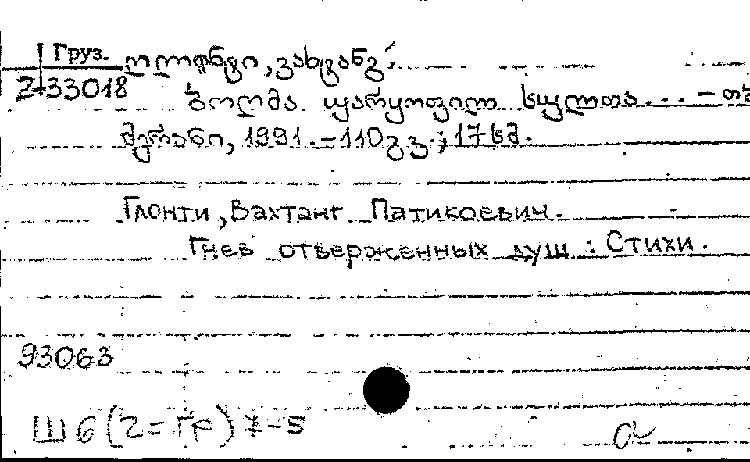 Груз.
ღლონტი, ვახტანგ.
2-33018
ბოღმა უარყოფილ სულთა... - თბ
მერანი, 1991. - 110 გვ.; 17 სმ.
Глонти, Вахтанг Патикоевич.
Гнев отверженных душ : Стихи.
93063
Ш6(2=Гр)7-5